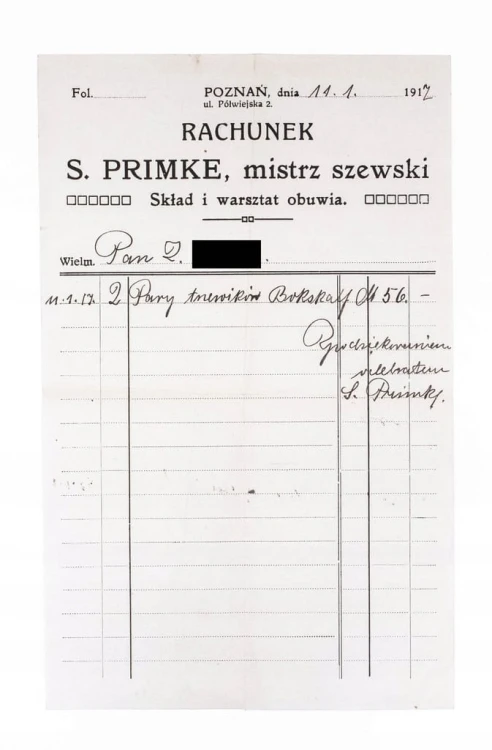 Fol. POZNAŃ, dnia 11. 1. 1917
ul. Półwiejska 2.
RACHUNEK
S. PRIMKE, mistrz szewski
Skład i warsztat obuwia.
Wielm. Pan
11.1.17. 2 Pary trzewików M 56. –
S. Primke.